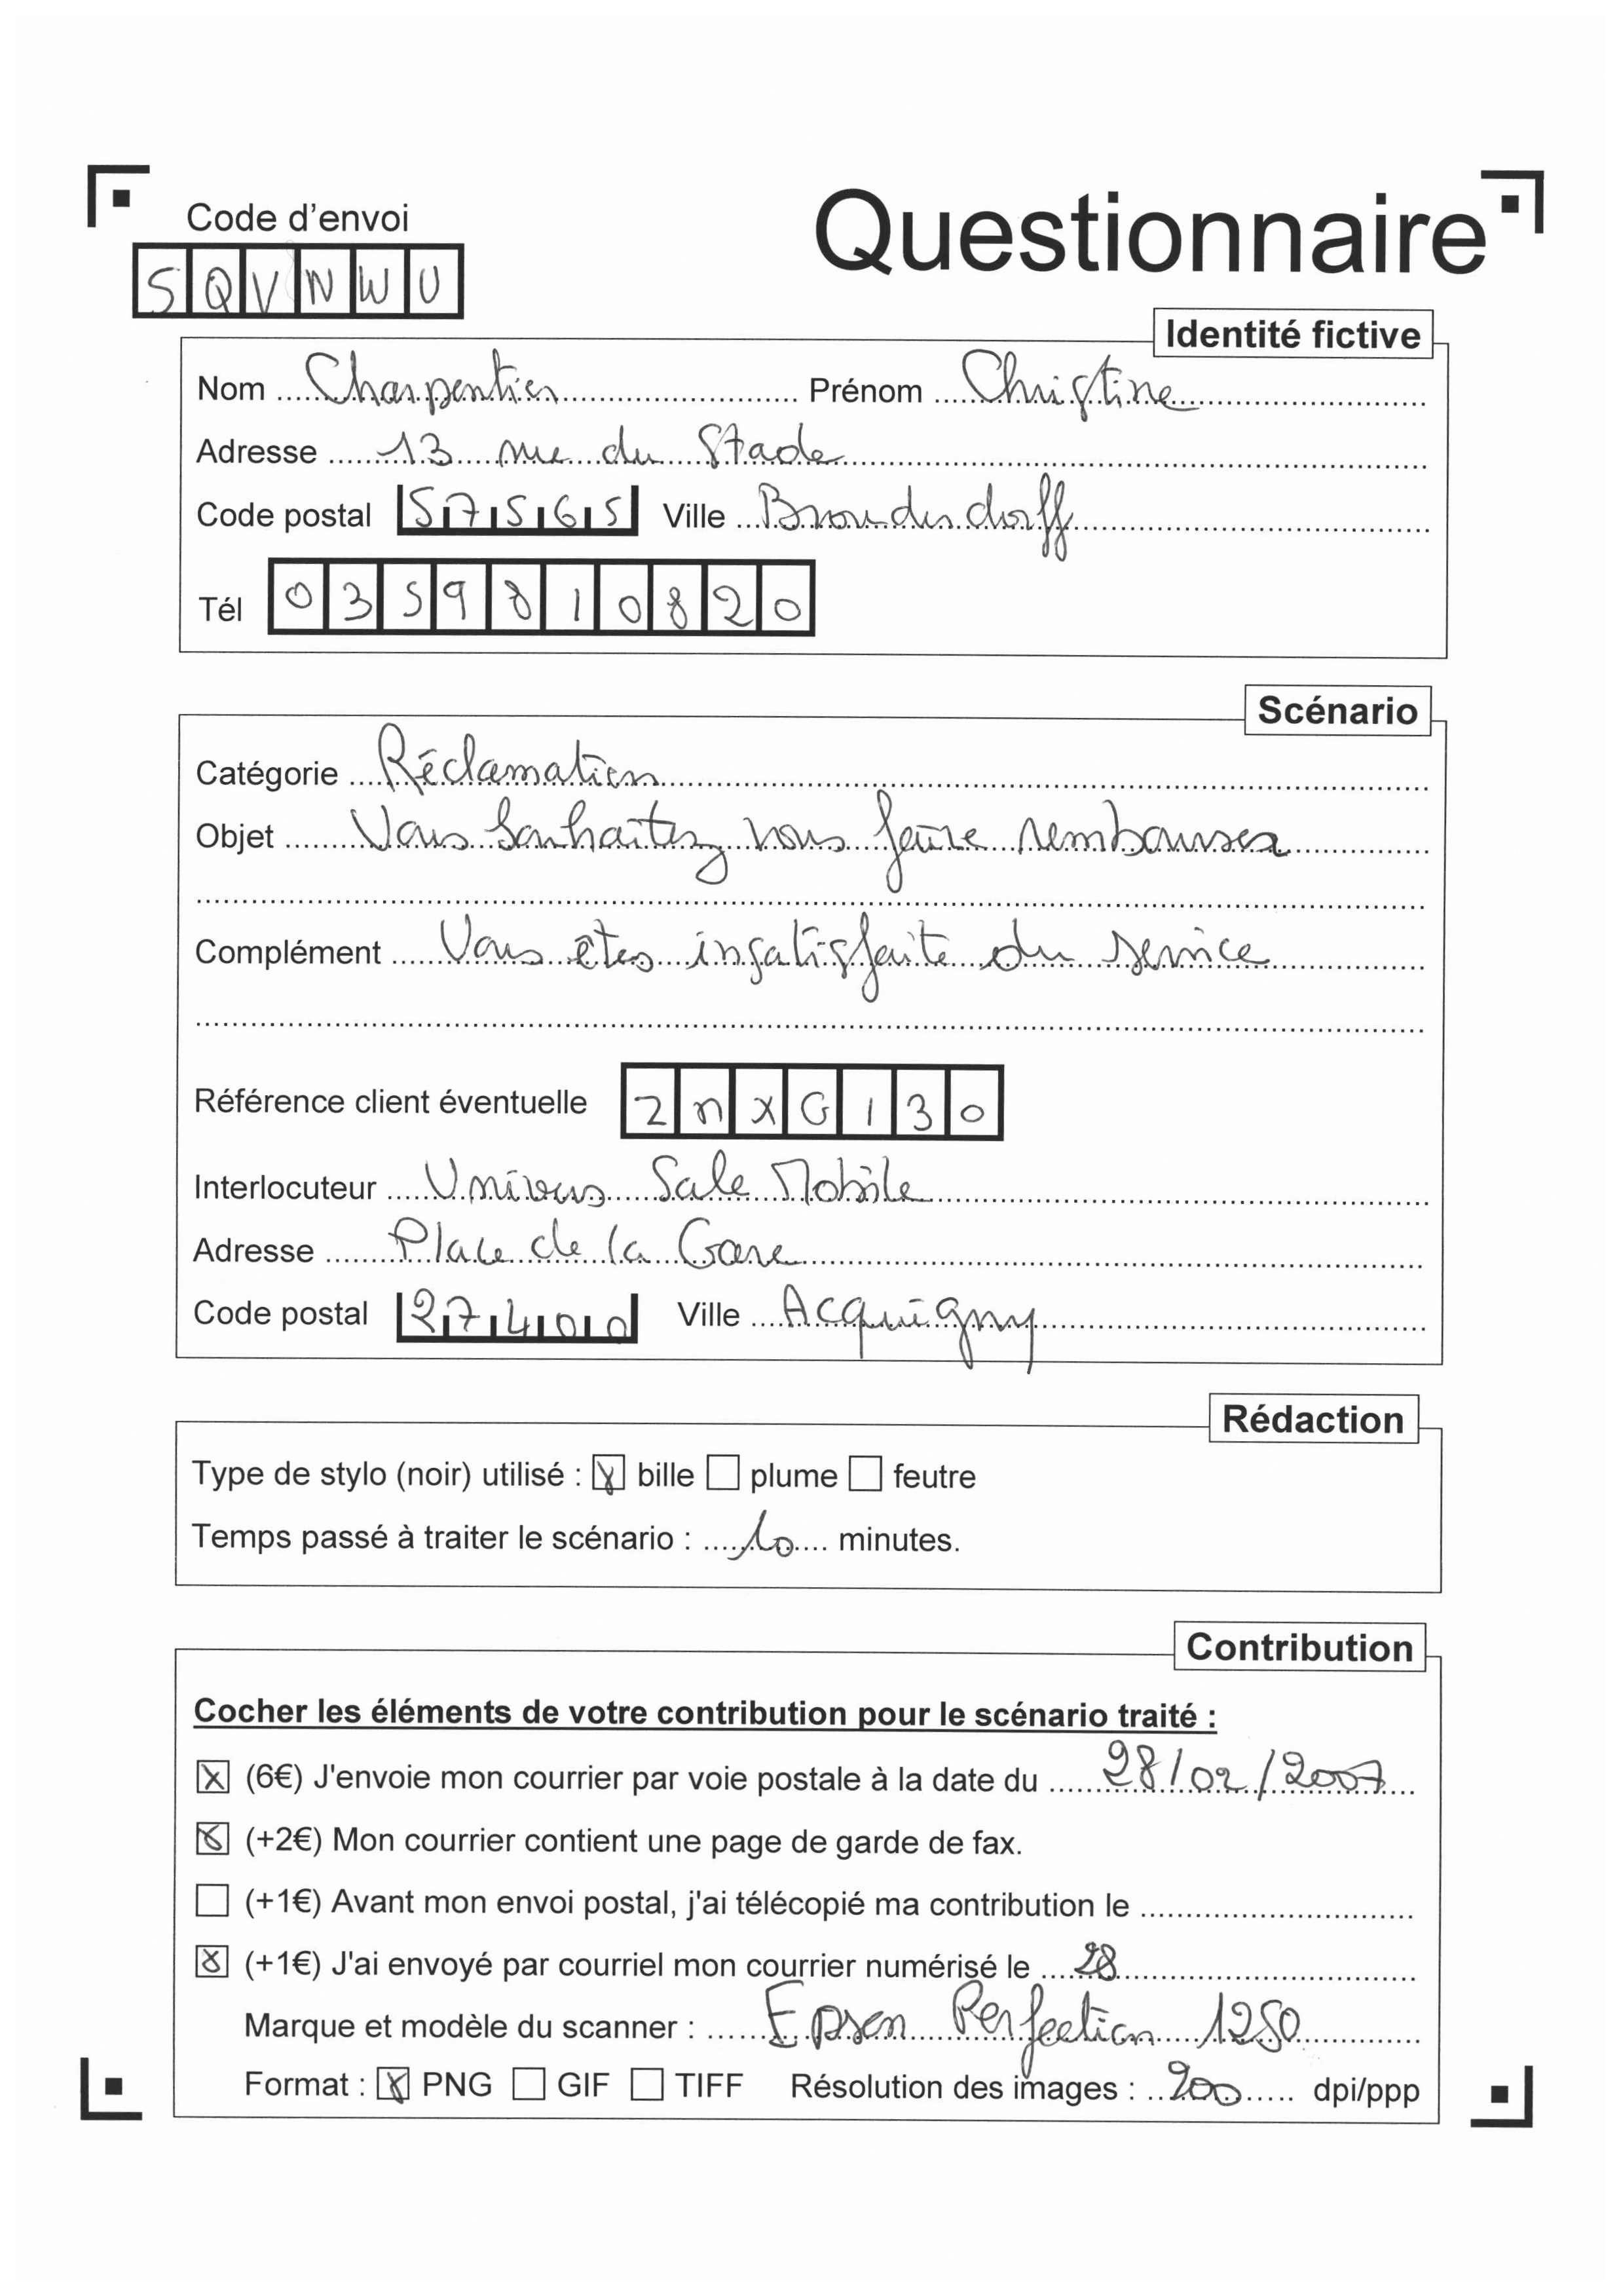 Code d'envoi
Questionnaire
SQVNWU
Identité fictive
Nom Charpentier Prénom Christine
Adresse 13 rue du Stade
Code postal 57565 Ville Brouderdorff
Tél 0359810820
Scénario
Catégorie Réclamation
Objet Vous souhaitez vous faire rembourser
Complément Vous êtes insatisfaite du service
Référence client éventuelle ZNXG130
Interlocuteur Univers Sale Mobile
Adresse Place de la Gare
Code postal 27400 Ville Acquigny
Rédaction
Type de stylo (noir) utilisé : ☒ bille ☐ plume ☐ feutre
Temps passé à traiter le scénario : 10 minutes.
Contribution
Cocher les éléments de votre contribution pour le scénario traité :
☒ (6€) J'envoie mon courrier par voie postale à la date du 28/02/2007
☒ (+2€) Mon courrier contient une page de garde de fax.
☐ (+1€) Avant mon envoi postal, j'ai télécopié ma contribution le
☒ (+1€) J'ai envoyé par courriel mon courrier numérisé le 28
Marque et modèle du scanner : Epson Perfection 1250
Format : ☒ PNG ☐ GIF ☐ TIFF Résolution des images : 200 dpi/ppp